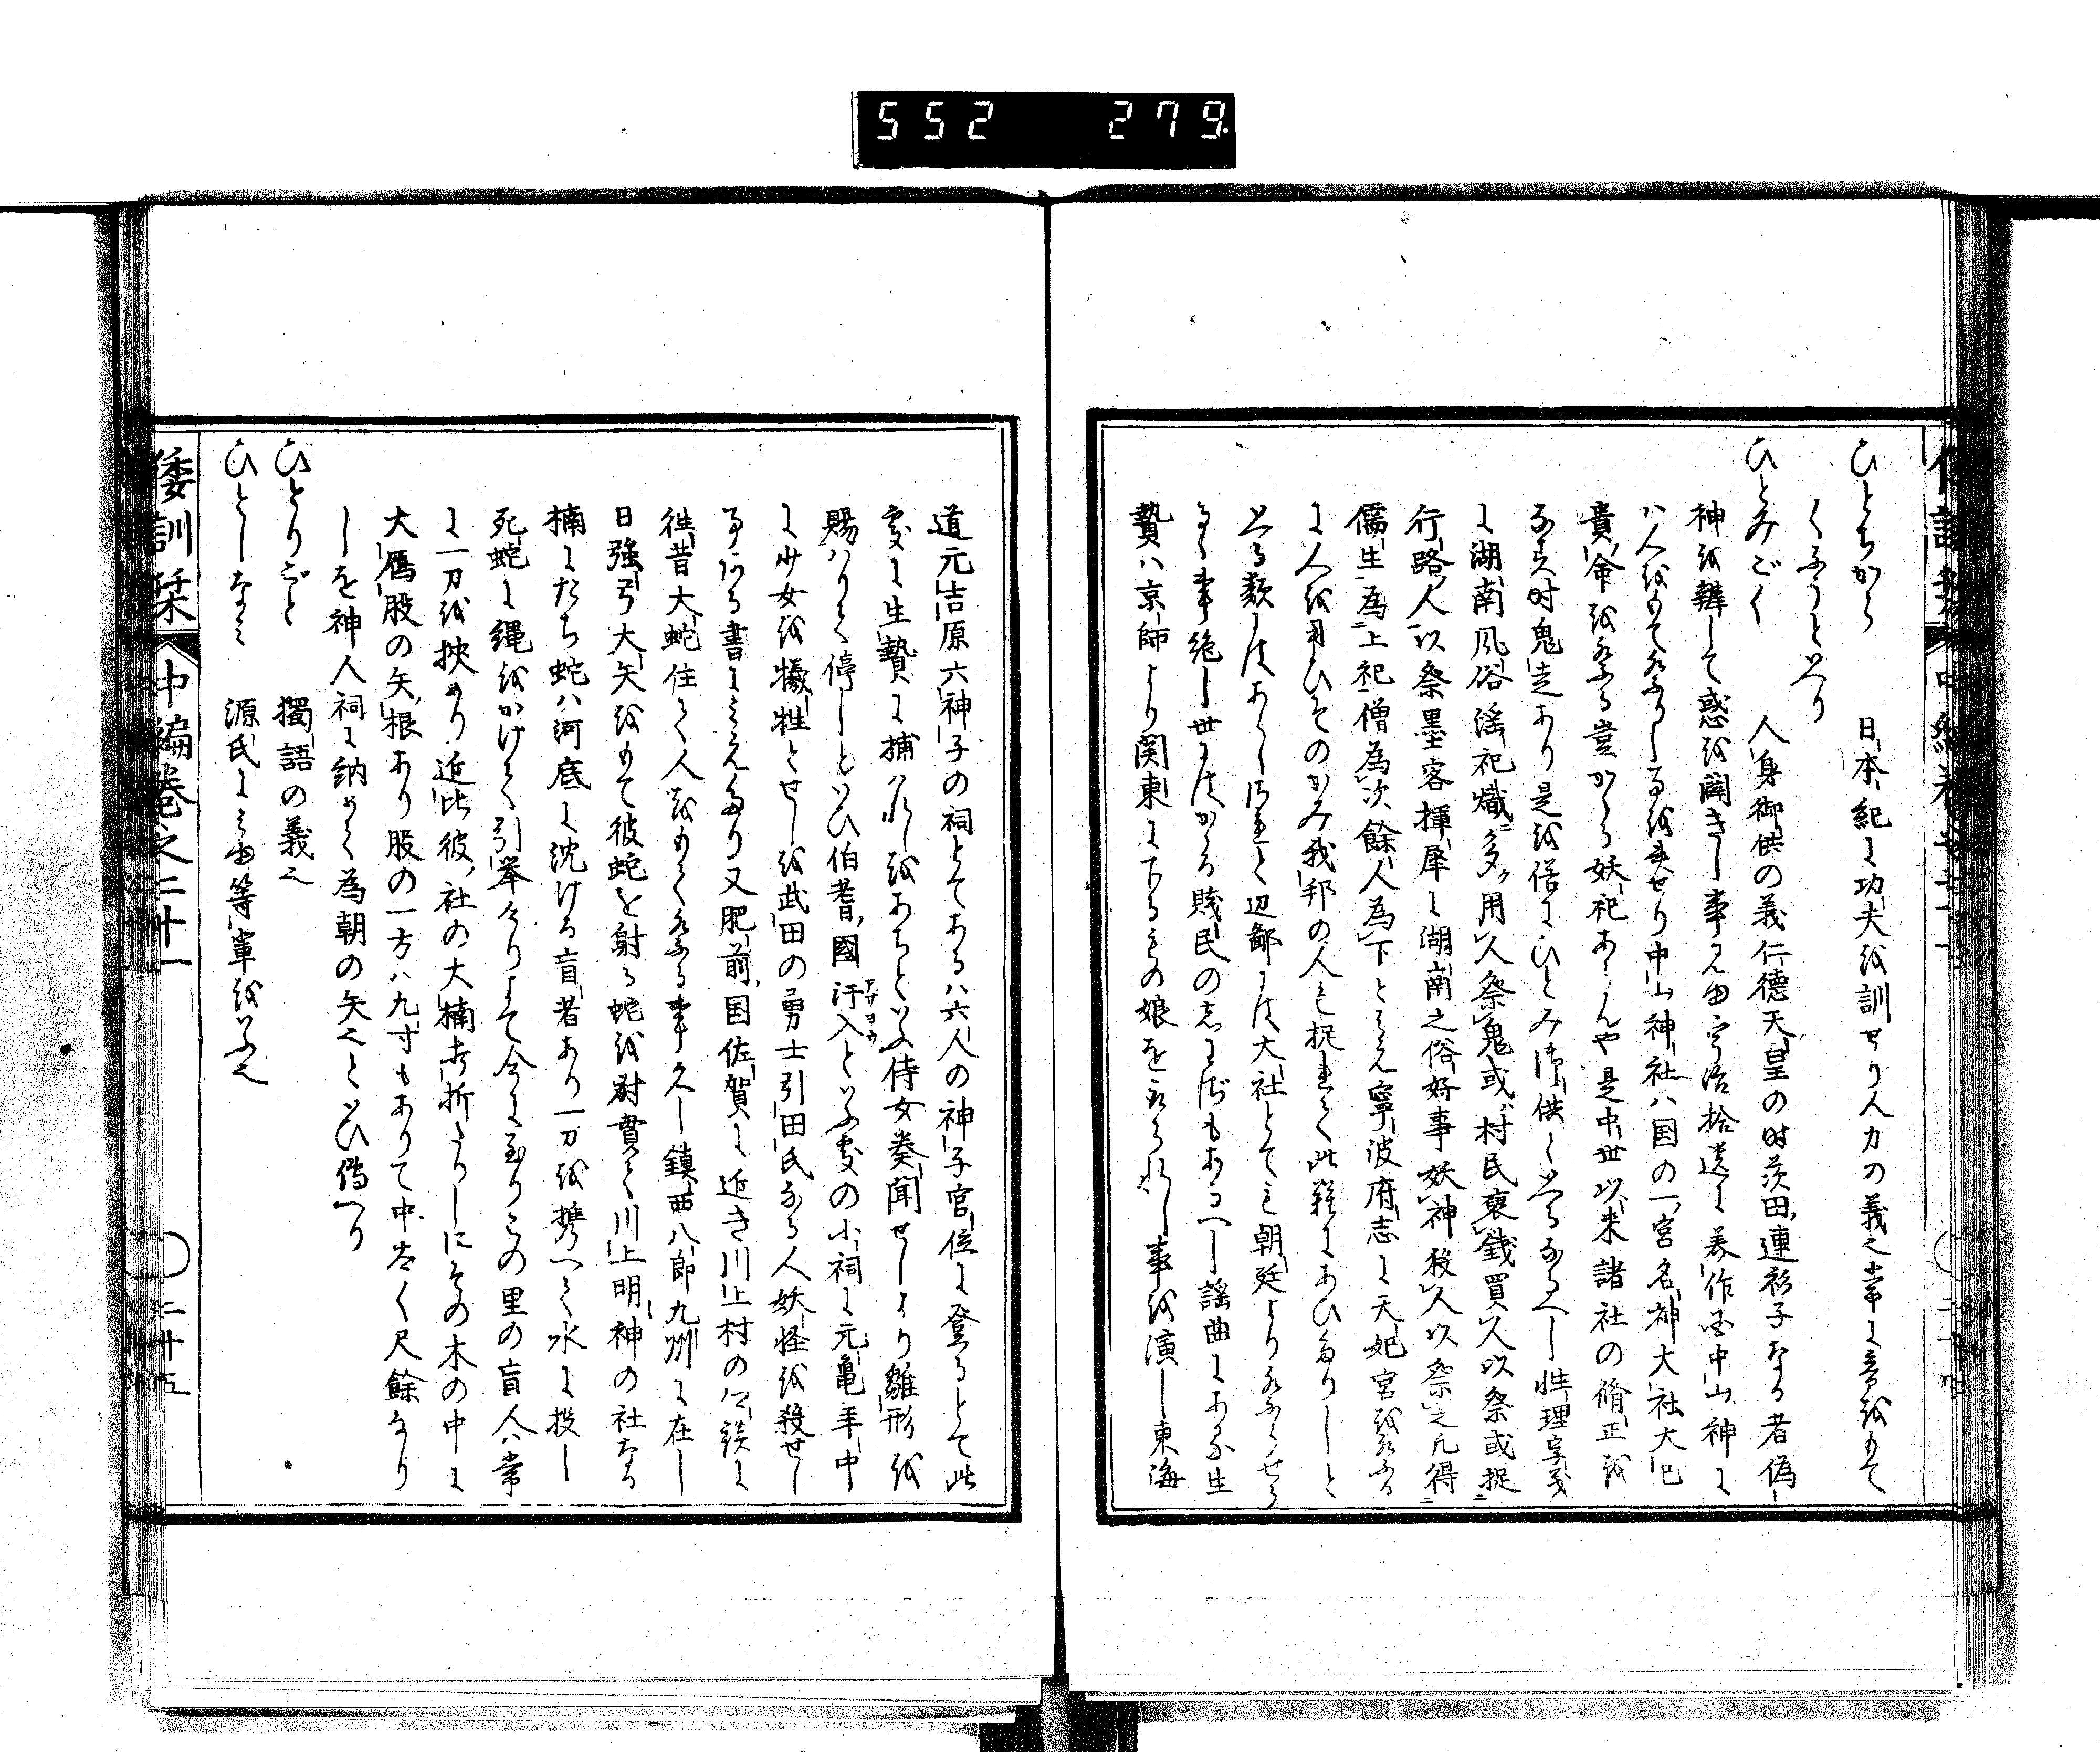 552 279
ひとちから 日本紀に功夫を訓せり人力の義也常に音をもて
くふうといへり
ひとみごく 人身御供の義仁徳天皇の時茨田連衫子なる者偽
神を辨して惑を開きし事見ゆ宇治拾遺に美作国中山神に
ハ人をもて祭りしるを載せり中山神社ハ国の一宮名神大社大己
貴命を祭る豈かゝる妖祀あらんや是中世以来諸社の脩正を
時鬼是あり是を俗にひとみ御供といへるなるへし性理字義
に湖南風俗淫祀熾多用人祭鬼或村民裒銭買人以祭或捉
行路人以祭墨客揮犀に湖南之俗好事妖神殺人以祭之凡得
儒生為上祀僧為次餘人為下とみえ寧波府志に天妃宮を祭る
に人を用ひそのかみ我邦の人も捉れて此難にあひたりしと
いへる類にはあらしされと辺鄙には大社とても朝廷より
る事絶し世にはかゝる賤民の志わざもあるへし謡曲にある生
贄ハ京師より関東に下るもの娘をとられし事を演し東海
道元吉原六神子の祠とてあるハ六人の神子官位に登るとて此
處に生贄に捕ハれしをあちといふ侍女奏聞せしより雛形を
賜ハりて停しといひ伯耆國汗入といふ處の小祠に元亀年中
アサヨウ
に少女を犠牲とせしを武田の勇士引田氏なる人妖怪を殺せし
事ある書にみえたり又肥前国佐賀に近き川上村の口談に
徃昔大蛇住て人をもて祭る事久し鎮西八郎九州に在し
日強弓大矢をもて彼蛇を射る蛇を射貫て川上明神の社なる
楠にたち蛇ハ河底に沈ける盲者あり一刀を携へて水に投し
死蛇に縄をかけて引挙たりよて今に至りこの里の盲人ハ常
に一刀を挾めり近比彼社の大楠吹折たりしにその木の中に
大鴈股の矢根あり股の一方ハ九寸もありて中広く尺餘なり
しを神人祠に納めて為朝の矢也といひ傳へり
ひとりごと 獨語の義也
ひとしなみ 源氏にみゆ等軍をいふ也
倭訓栞 中編巻之二十一 〇二十五